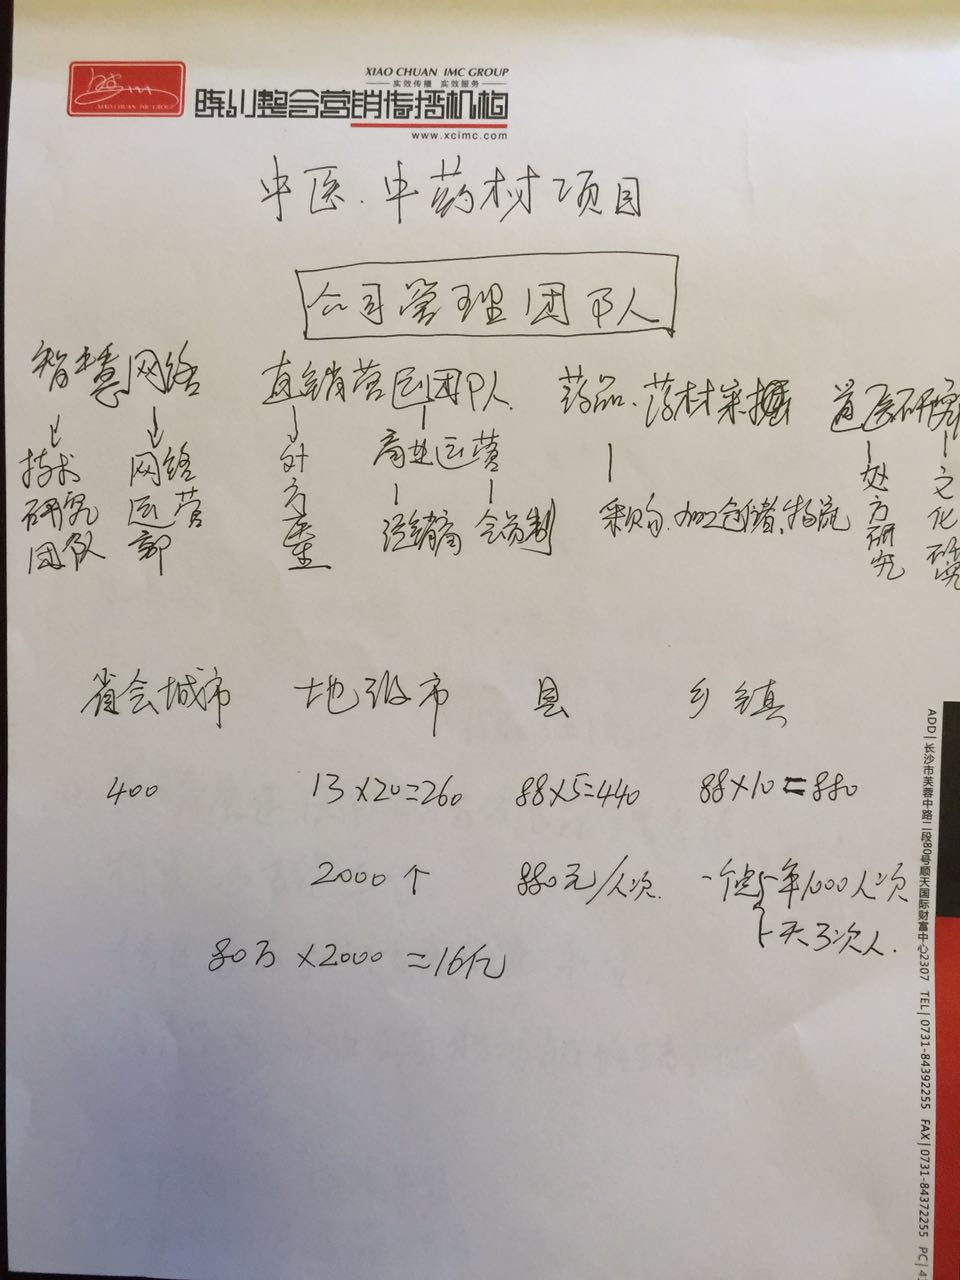 XIAO CHUAN IMC GROUP
实效传播 实效服务
XIAO CHUAN IMC GROUP
晓川整合营销传播机构
www.xcimc.com
中医.中药材项目
公司管理团队
智慧网络 直销营运团队 药品、药材采 道医研究
技术研究团队 网络运营部 针方医生 商业运营 经销商 会员制 采购、加工仓储、物流 处方研究 文化研究
省会城市 地级市 县 乡镇
400 13×20=260 88×5=440 88×10=880
2000个 880元/人次. 一个店一年1000人次
一天3次人.
80万×2000=16亿
ADD|长沙市芙蓉中路二段80号顺天国际财富中心2307 TEL|0731-84392255 FAX|0731-84372255 PC|4